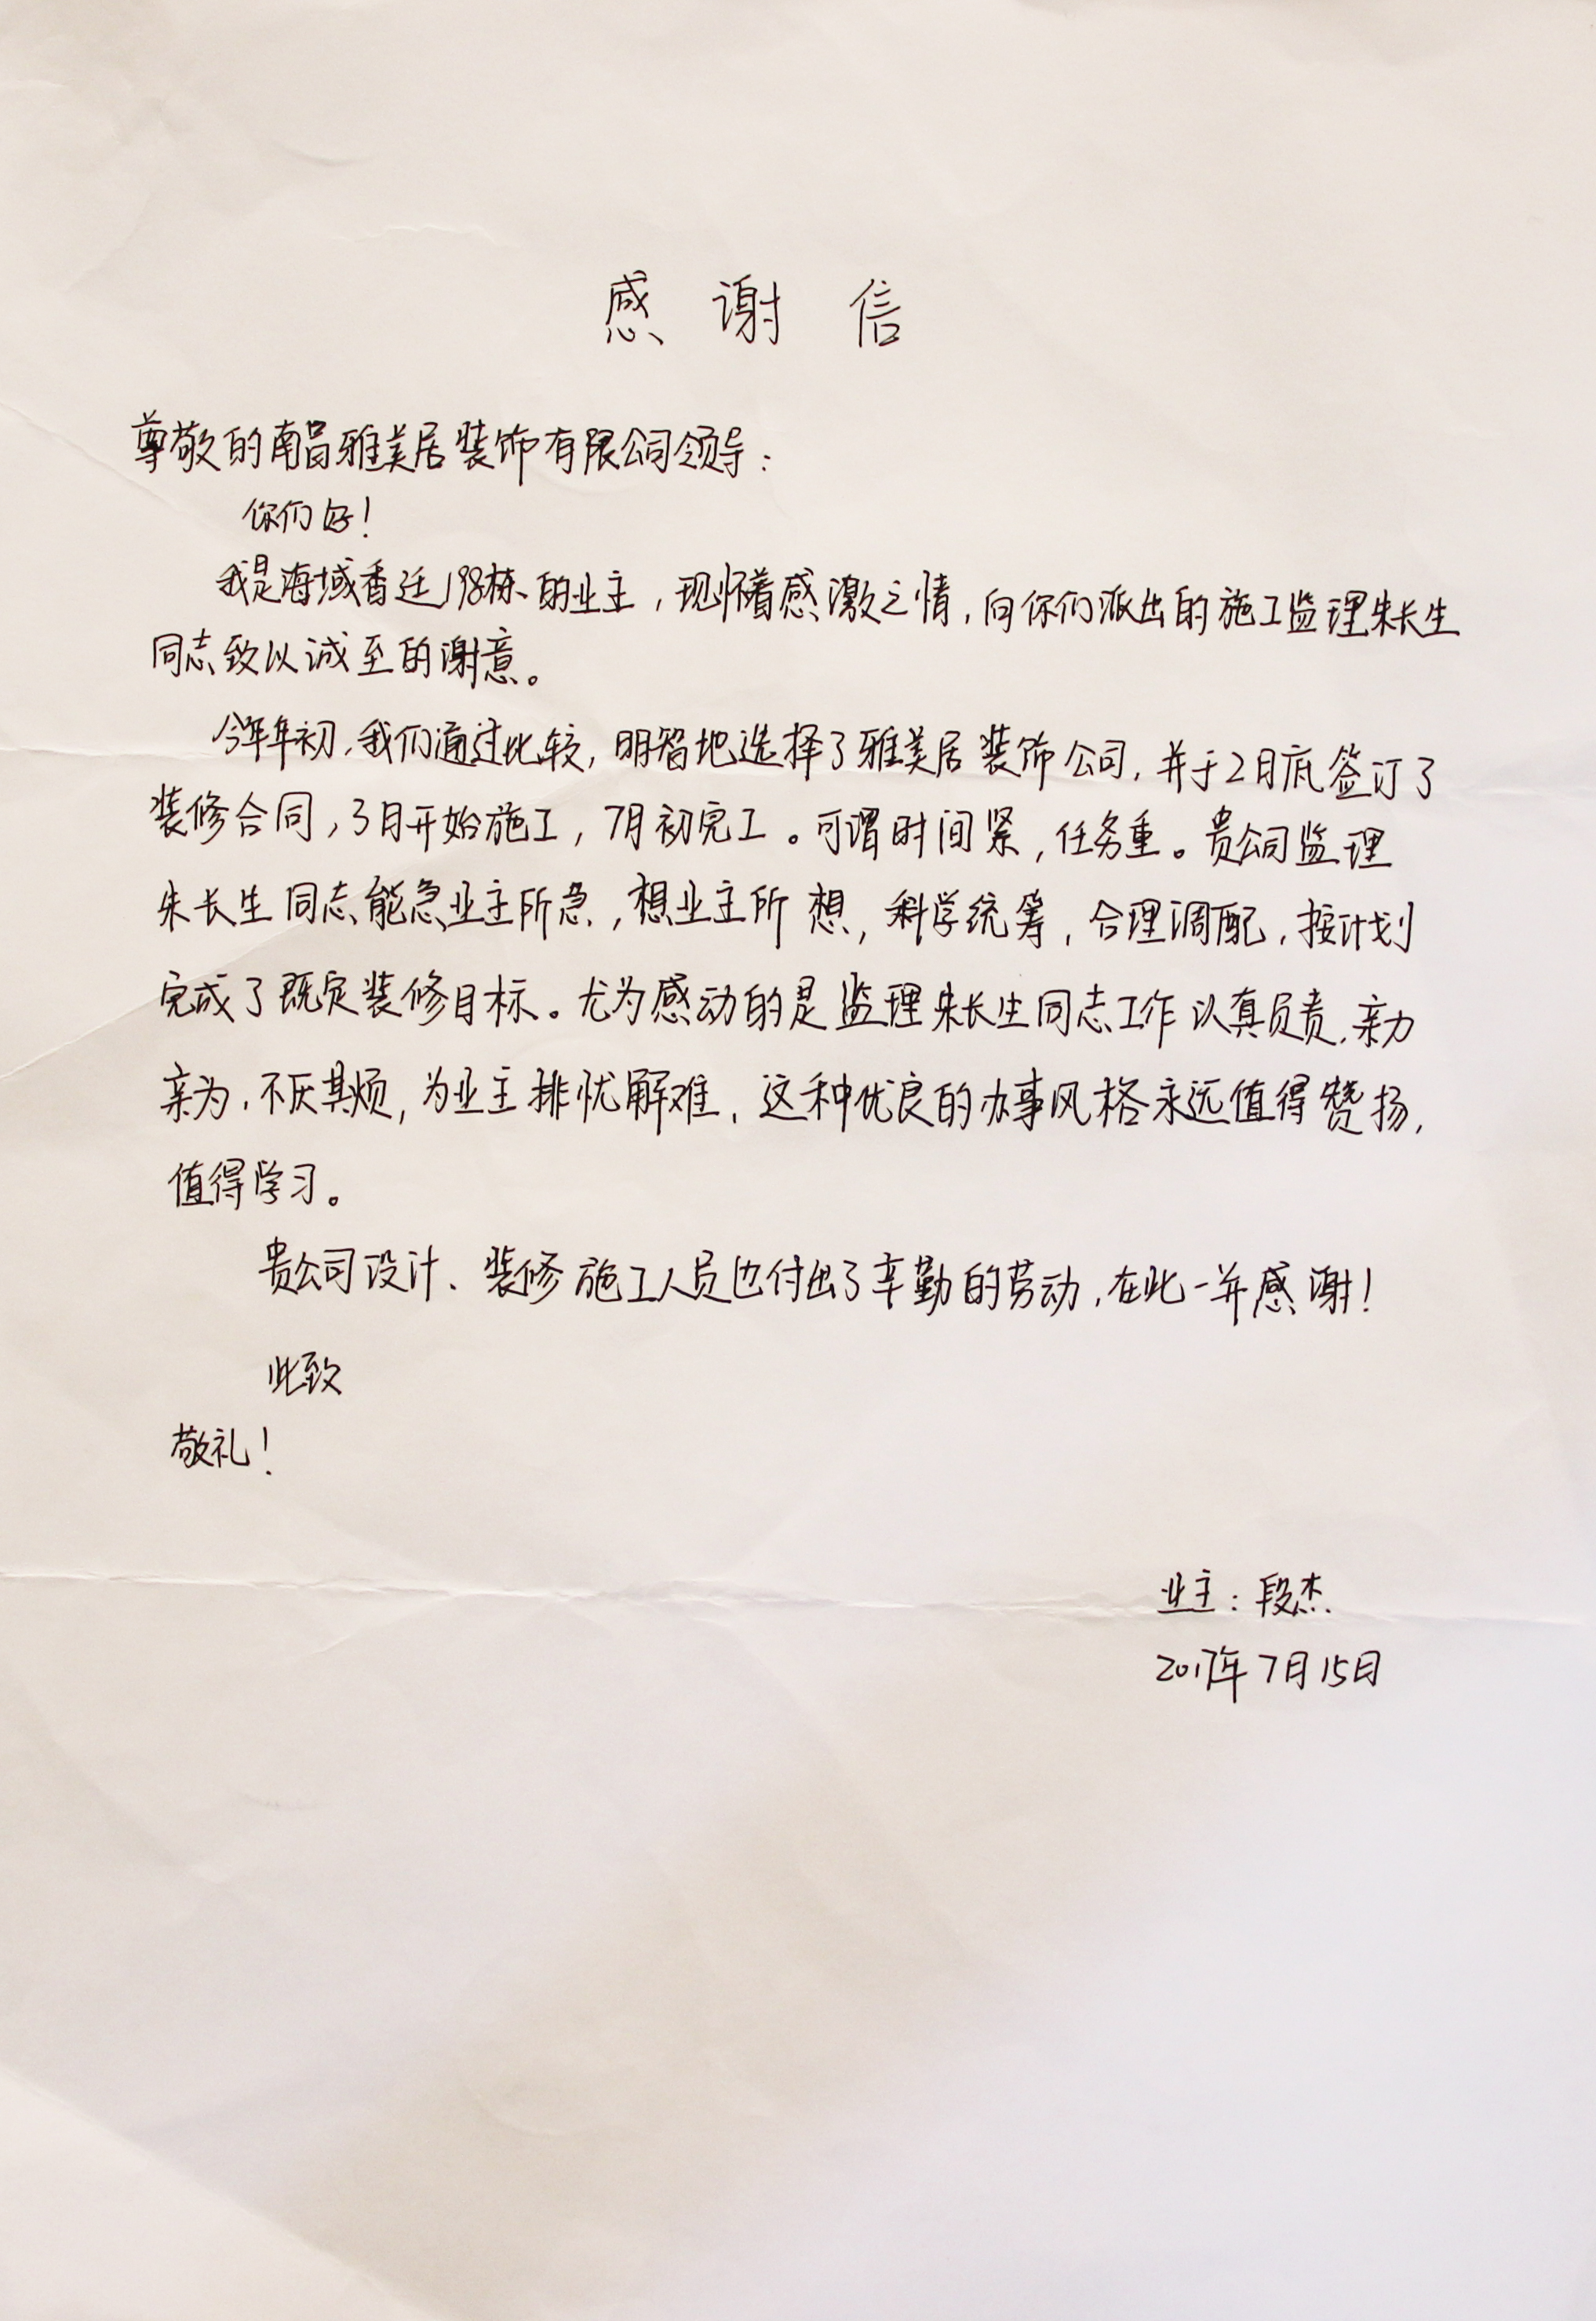 感谢信
尊敬的南昌雅美居装饰有限公司领导：
你们好！
我是海域香廷198栋的业主，现怀着感激之情，向你们派出的施工监理朱长生
同志致以诚至的谢意。
今年年初，我们通过比较，明智地选择了雅美居装饰公司，并于2月底签订了
装修合同，3月开始施工，7月初完工。可谓时间紧，任务重。贵公司监理
朱长生同志能急业主所急，想业主所想，科学统筹，合理调配，按计划
完成了既定装修目标。尤为感动的是监理朱长生同志工作认真负责，亲力
亲为，不厌其烦，为业主排忧解难，这种优良的办事风格永远值得赞扬，
值得学习。
贵公司设计、装修施工人员也付出了辛勤的劳动，在此一并感谢！
此致
敬礼！
业主：段杰
2017年7月15日